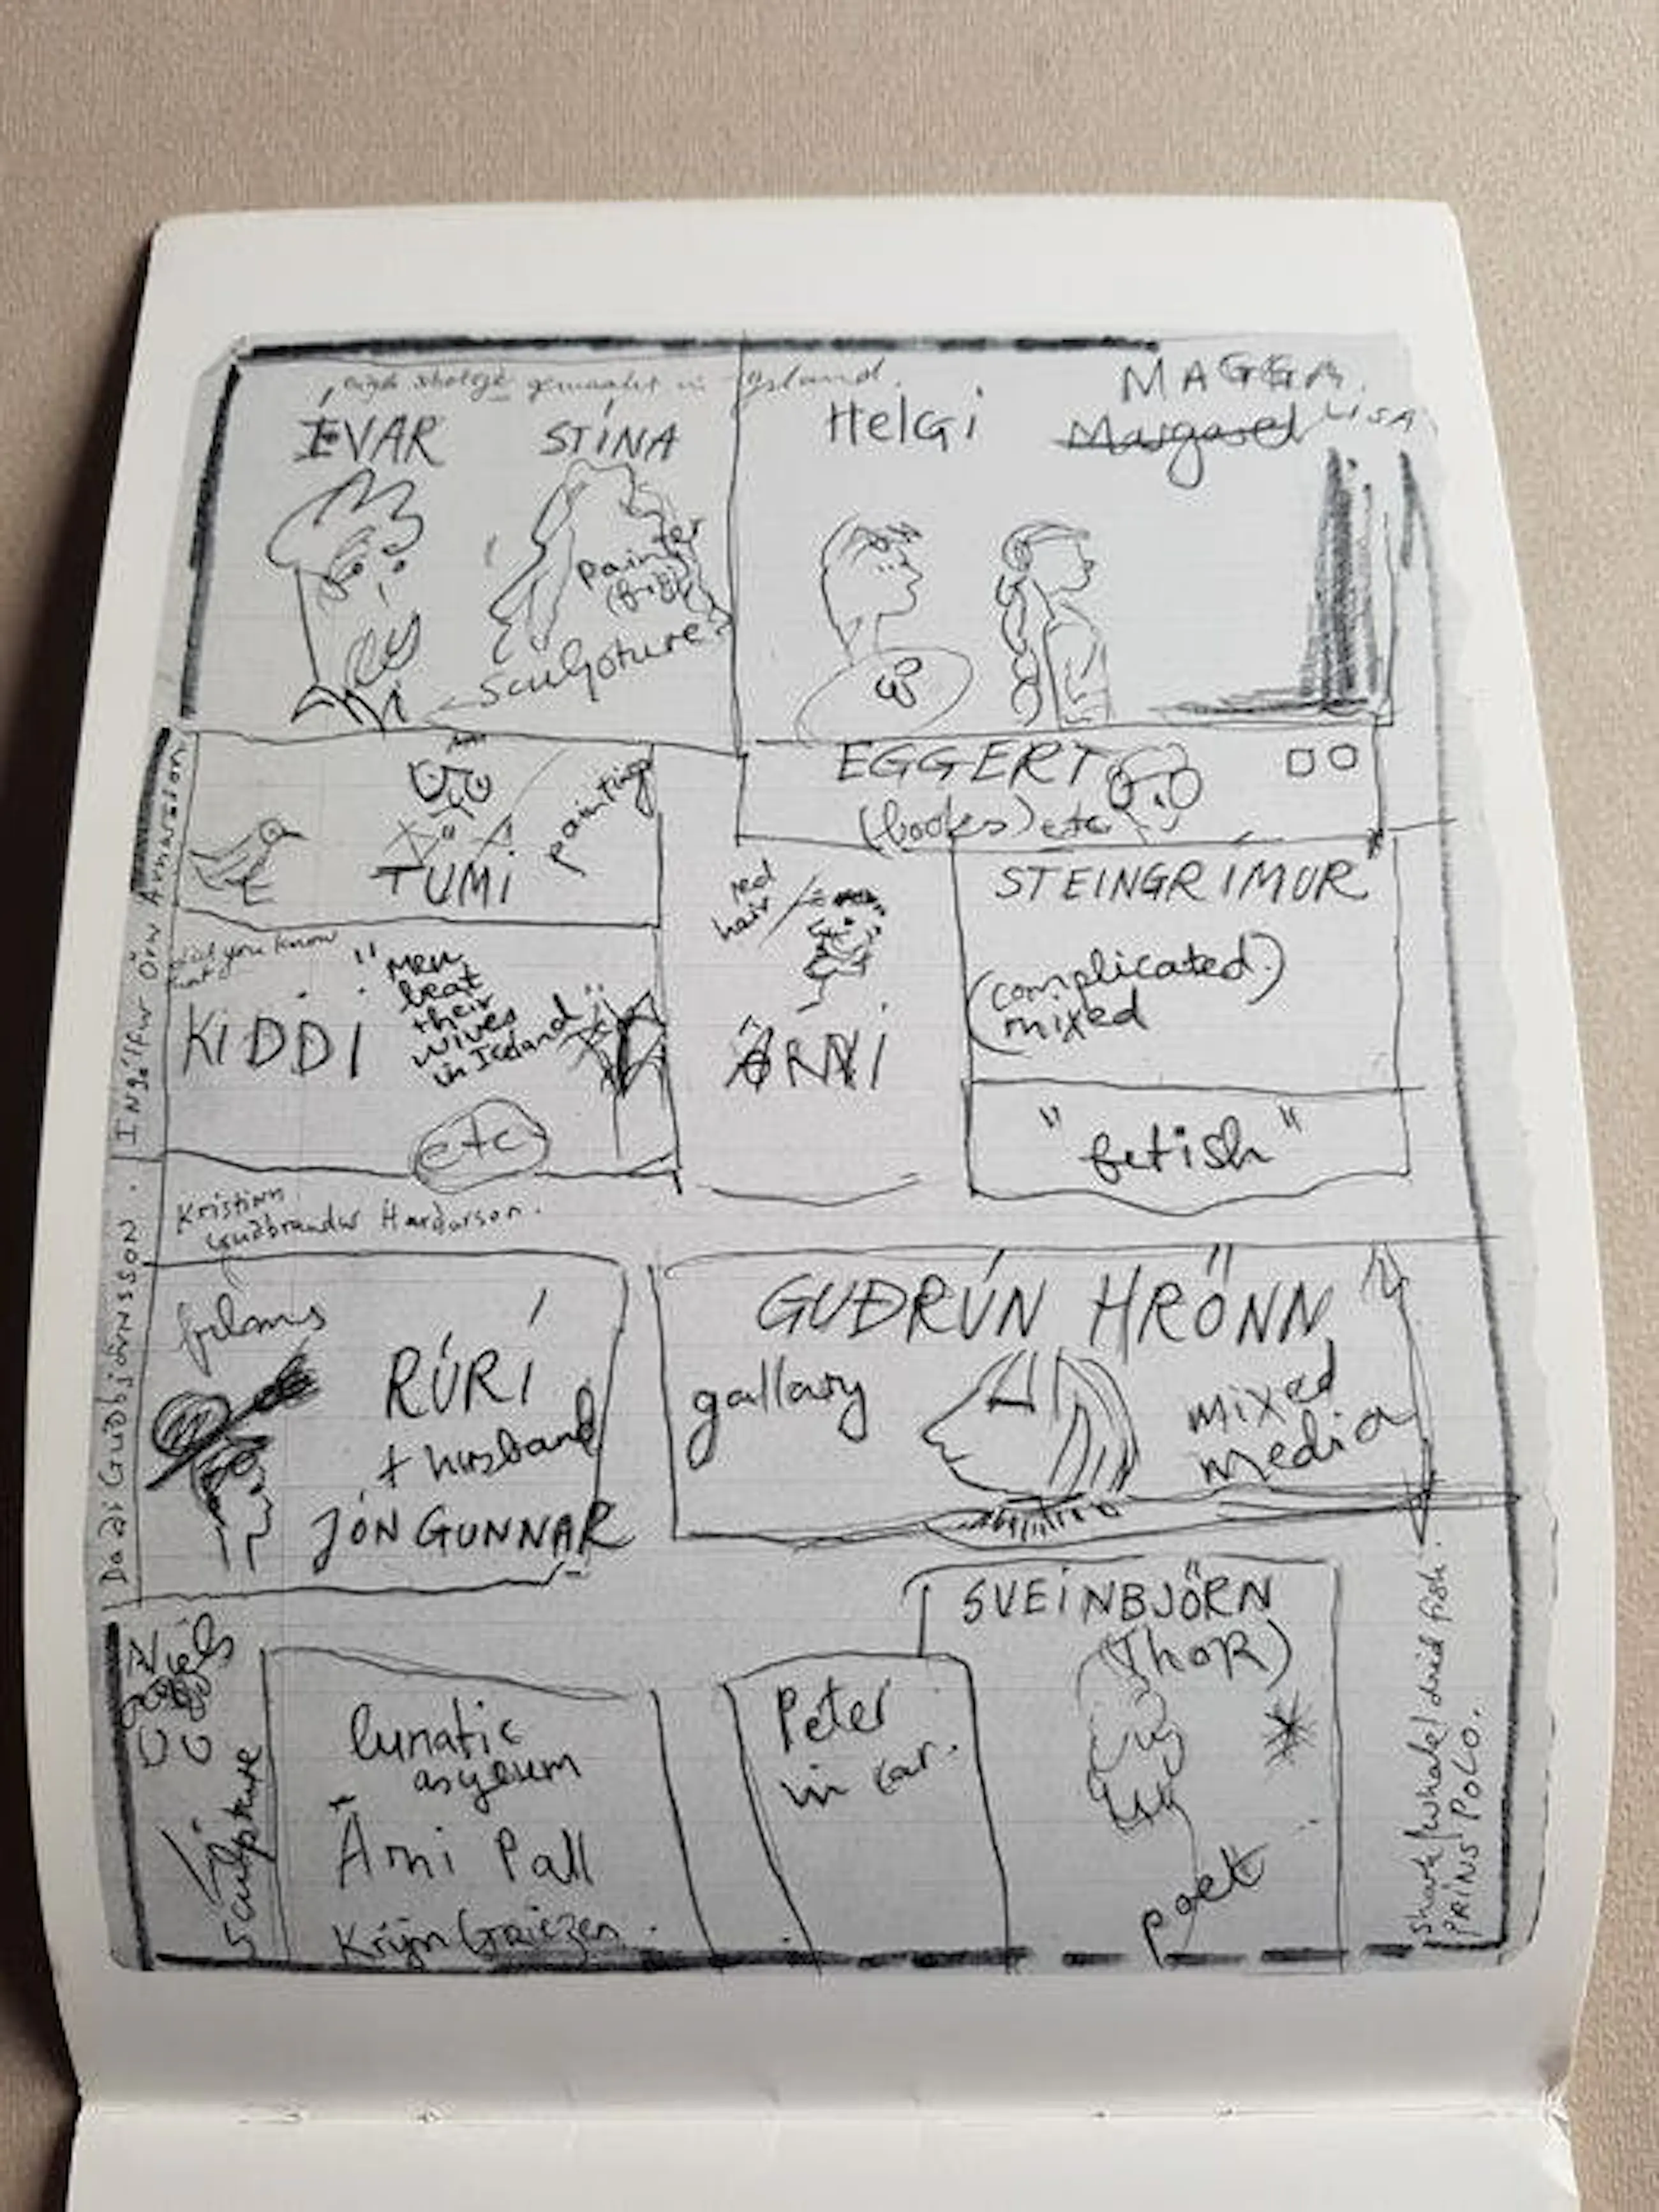 gemaakt in Ijsland.
ÍVAR
STÍNA
painter
sculpture
HelGi
MAGGA
Margaret LISA
Ingólfur Örn Arnarson
TUMI
painting
EGGERT
(books) etc
did you know
that
KIDDI
"Men
beat
their
wives
in Iceland"
etc
red
hair
ÁRNI
STEINGRÍMUR
(complicated)
mixed
"fetish"
Kristinn
Guðbrandur Harðarson.
Daði Guðbjörnsson.
films
RÚRÍ
+ husband
JÓN GUNNAR
GUÐRÚN HRÖNN
gallary
mixed
media
sculpture
lunatic
asylum
Árni Pall
Krijn Griezen.
Peter
in car.
SVEINBJÖRN
(Thor)
poet
shark/whale/dried fish.
PRINS POLO.